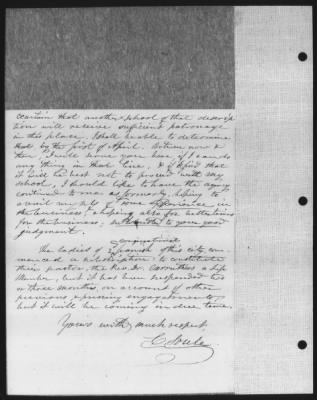 certain that another school of that descrip
tion will receive sufficient patronage
in this place. I shall be able to determine
that by the first of April. Between now &
then, I will serve you here if I can do
any thing in that line. & if I find that
it will be best not to proceed with my
school, I should like to have the agency
continued to me as formerly, hoping to
avail myself of some experience in
the business, & hoping also for better times
for the business; but to your good
judgment.
The ladies of Spanish of this city com
menced a subscription to constitute
their pastor, the Rev. Dr. Carruthers a life
Member, but it has been suspended two
or three months, on account of other
previous & pressing engagements,
but it will be coming in due time.
Yours with much respect,
C. Soule